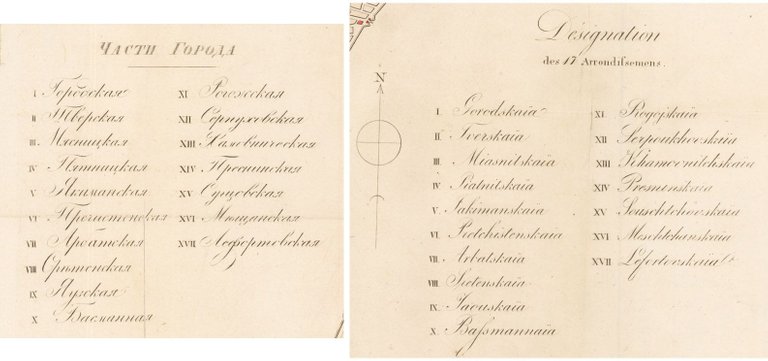 Части Города
I Городская
II Тверская
III. Мясницкая
IV Пятницкая
V Якиманская
VI Пречистенская
VII Арбатская
VIII Срѣтенская
IX Яузская
X Басманная
XI Рогожская
XII Серпуховская
XIII Хамовническая
XIV Пресненская
XV Сущовская
XVI Мѣщанская
XVII Лефортовская
Désignation
des 17 Arrondissemens.
N
I. Gorodskaïa
II. Tverskaïa
III. Miasnitskaïa
IV Piatnitskaïa
V. Iakimanskaïa
VI. Pretchistenskaïa
VII. Arbatskaïa
VIII. Sretenskaïa
IX. Iaouskaïa
X. Bassmannaïa
XI. Rogojskaïa
XII Serpoukhovskaïa
XIII Khamovnitchskaïa
XIV Presnenskaïa
XV Souschtchovskaïa
XVI Meschtchanskaïa
XVII Lefortovskaïa